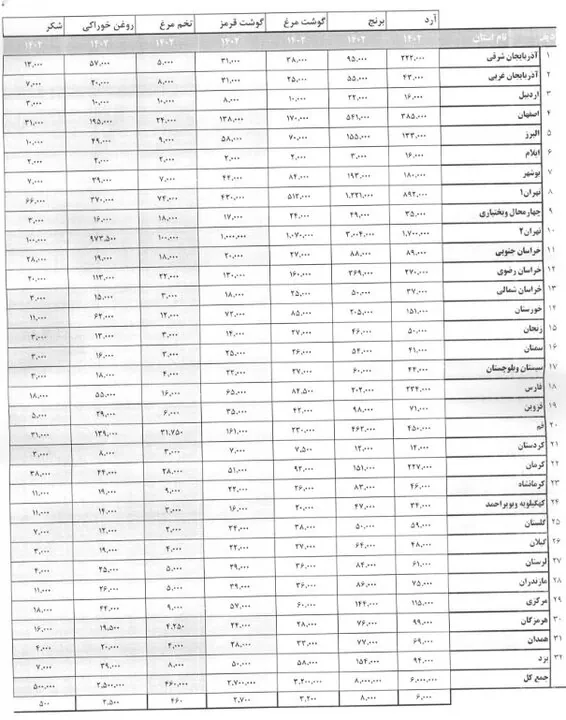 آرد برنج گوشت مرغ گوشت قرمز تخم مرغ روغن خوراکی شکر
ردیف نام استان ۱۴۰۲ ۱۴۰۲ ۱۴۰۲ ۱۴۰۲ ۱۴۰۲ ۱۴۰۲ ۱۴۰۲
۱ آذربایجان شرقی ۲۲۲,۰۰۰ ۹۵,۰۰۰ ۳۸,۰۰۰ ۳۱,۰۰۰ ۵,۰۰۰ ۵۷,۰۰۰ ۱۳,۰۰۰
۲ آذربایجان غربی ۴۳,۰۰۰ ۵۵,۰۰۰ ۲۵,۰۰۰ ۳۱,۰۰۰ ۸,۰۰۰ ۲۰,۰۰۰ ۷,۰۰۰
۳ اردبیل ۱۶,۰۰۰ ۲۲,۰۰۰ ۱۰,۰۰۰ ۸,۰۰۰ ۱۰,۰۰۰ ۱۰,۰۰۰ ۳,۰۰۰
۴ اصفهان ۳۸۵,۰۰۰ ۵۴۱,۰۰۰ ۱۷۰,۰۰۰ ۱۳۸,۰۰۰ ۲۴,۰۰۰ ۱۹۵,۰۰۰ ۳۱,۰۰۰
۵ البرز ۱۳۳,۰۰۰ ۱۵۵,۰۰۰ ۷۰,۰۰۰ ۵۸,۰۰۰ ۹,۰۰۰ ۴۹,۰۰۰ ۱۰,۰۰۰
۶ ایلام ۱۶,۰۰۰ ۳,۰۰۰ ۲,۰۰۰ ۲,۰۰۰ ۲,۰۰۰ ۲,۰۰۰ ۲,۰۰۰
۷ بوشهر ۱۸۰,۰۰۰ ۱۹۳,۰۰۰ ۸۴,۰۰۰ ۴۲,۰۰۰ ۷,۰۰۰ ۳۹,۰۰۰ ۷,۰۰۰
۸ تهران۱ ۸۹۲,۰۰۰ ۱,۲۲۱,۰۰۰ ۵۱۲,۰۰۰ ۴۳۰,۰۰۰ ۷۴,۰۰۰ ۳۷۰,۰۰۰ ۶۶,۰۰۰
۹ چهارمحال وبختیاری ۳۵,۰۰۰ ۴۹,۰۰۰ ۲۴,۰۰۰ ۱۷,۰۰۰ ۱۸,۰۰۰ ۱۶,۰۰۰ ۳,۰۰۰
۱۰ تهران۲ ۱,۷۰۰,۰۰۰ ۳,۰۰۴,۰۰۰ ۱,۰۷۰,۰۰۰ ۱,۰۰۰,۰۰۰ ۱۰۰,۰۰۰ ۹۷۳,۵۰۰ ۱۰۰,۰۰۰
۱۱ خراسان جنوبی ۸۹,۰۰۰ ۸۸,۰۰۰ ۲۷,۰۰۰ ۲۰,۰۰۰ ۱۸,۰۰۰ ۱۹,۰۰۰ ۲۸,۰۰۰
۱۲ خراسان رضوی ۲۷۰,۰۰۰ ۳۶۹,۰۰۰ ۱۶۰,۰۰۰ ۱۳۰,۰۰۰ ۲۲,۰۰۰ ۱۱۳,۰۰۰ ۲۰,۰۰۰
۱۳ خراسان شمالی ۳۷,۰۰۰ ۵۰,۰۰۰ ۲۵,۰۰۰ ۱۸,۰۰۰ ۳,۰۰۰ ۱۵,۰۰۰ ۳,۰۰۰
۱۴ خوزستان ۱۵۱,۰۰۰ ۲۰۵,۰۰۰ ۸۵,۰۰۰ ۷۲,۰۰۰ ۱۲,۰۰۰ ۶۲,۰۰۰ ۱۱,۰۰۰
۱۵ زنجان ۵۰,۰۰۰ ۴۶,۰۰۰ ۲۷,۰۰۰ ۱۴,۰۰۰ ۳,۰۰۰ ۱۳,۰۰۰ ۳,۰۰۰
۱۶ سمنان ۴۱,۰۰۰ ۵۴,۰۰۰ ۲۶,۰۰۰ ۲۵,۰۰۰ ۳,۰۰۰ ۱۶,۰۰۰ ۳,۰۰۰
۱۷ سیستان وبلوچستان ۴۴,۰۰۰ ۶۰,۰۰۰ ۲۷,۰۰۰ ۲۲,۰۰۰ ۴,۰۰۰ ۱۸,۰۰۰ ۳,۰۰۰
۱۸ فارس ۲۳۴,۰۰۰ ۲۰۲,۰۰۰ ۸۲,۵۰۰ ۶۵,۰۰۰ ۱۶,۰۰۰ ۵۵,۰۰۰ ۱۸,۰۰۰
۱۹ قزوین ۷۱,۰۰۰ ۹۸,۰۰۰ ۴۲,۰۰۰ ۳۵,۰۰۰ ۶,۰۰۰ ۲۹,۰۰۰ ۵,۰۰۰
۲۰ قم ۴۵۰,۰۰۰ ۴۶۳,۰۰۰ ۲۳۰,۰۰۰ ۱۶۱,۰۰۰ ۳۱,۷۵۰ ۱۳۹,۰۰۰ ۳۱,۰۰۰
۲۱ کردستان ۱۴,۰۰۰ ۱۲,۰۰۰ ۷,۵۰۰ ۷,۰۰۰ ۳,۰۰۰ ۸,۰۰۰ ۲,۰۰۰
۲۲ کرمان ۲۲۷,۰۰۰ ۱۵۱,۰۰۰ ۹۲,۰۰۰ ۵۱,۰۰۰ ۲۸,۰۰۰ ۴۴,۰۰۰ ۳۸,۰۰۰
۲۳ کرمانشاه ۴۶,۰۰۰ ۸۳,۰۰۰ ۲۶,۰۰۰ ۲۲,۰۰۰ ۹,۰۰۰ ۱۹,۰۰۰ ۱۱,۰۰۰
۲۴ کهگیلویه وبویراحمد ۳۴,۰۰۰ ۴۷,۰۰۰ ۲۰,۰۰۰ ۱۶,۰۰۰ ۳,۰۰۰ ۱۴,۰۰۰ ۱۱,۰۰۰
۲۵ گلستان ۵۹,۰۰۰ ۵۰,۰۰۰ ۳۸,۰۰۰ ۲۴,۰۰۰ ۲,۰۰۰ ۱۲,۰۰۰ ۷,۰۰۰
۲۶ گیلان ۴۸,۰۰۰ ۶۴,۰۰۰ ۲۷,۰۰۰ ۲۲,۰۰۰ ۴,۰۰۰ ۱۹,۰۰۰ ۳,۰۰۰
۲۷ لرستان ۶۱,۰۰۰ ۸۴,۰۰۰ ۳۶,۰۰۰ ۳۹,۰۰۰ ۵,۰۰۰ ۲۵,۰۰۰ ۴,۰۰۰
۲۸ مازندران ۷۵,۰۰۰ ۸۶,۰۰۰ ۳۶,۰۰۰ ۳۹,۰۰۰ ۵,۰۰۰ ۲۶,۰۰۰ ۱۱,۰۰۰
۲۹ مرکزی ۱۱۵,۰۰۰ ۱۴۴,۰۰۰ ۶۰,۰۰۰ ۵۷,۰۰۰ ۹,۰۰۰ ۴۴,۰۰۰ ۱۸,۰۰۰
۳۰ هرمزگان ۹۹,۰۰۰ ۷۶,۰۰۰ ۲۸,۰۰۰ ۲۴,۰۰۰ ۴,۲۵۰ ۱۹,۵۰۰ ۱۶,۰۰۰
۳۱ همدان ۶۹,۰۰۰ ۷۷,۰۰۰ ۳۳,۰۰۰ ۲۸,۰۰۰ ۴,۰۰۰ ۲۰,۰۰۰ ۴,۰۰۰
۳۲ یزد ۹۴,۰۰۰ ۱۵۴,۰۰۰ ۵۸,۰۰۰ ۵۰,۰۰۰ ۸,۰۰۰ ۳۹,۰۰۰ ۷,۰۰۰
جمع کل ۶,۰۰۰,۰۰۰ ۸,۰۰۰,۰۰۰ ۳,۲۰۰,۰۰۰ ۲,۷۰۰,۰۰۰ ۴۶۰,۰۰۰ ۲,۵۰۰,۰۰۰ ۵۰۰,۰۰۰
۶,۰۰۰ ۸,۰۰۰ ۳,۲۰۰ ۲,۷۰۰ ۴۶۰ ۲,۵۰۰ ۵۰۰